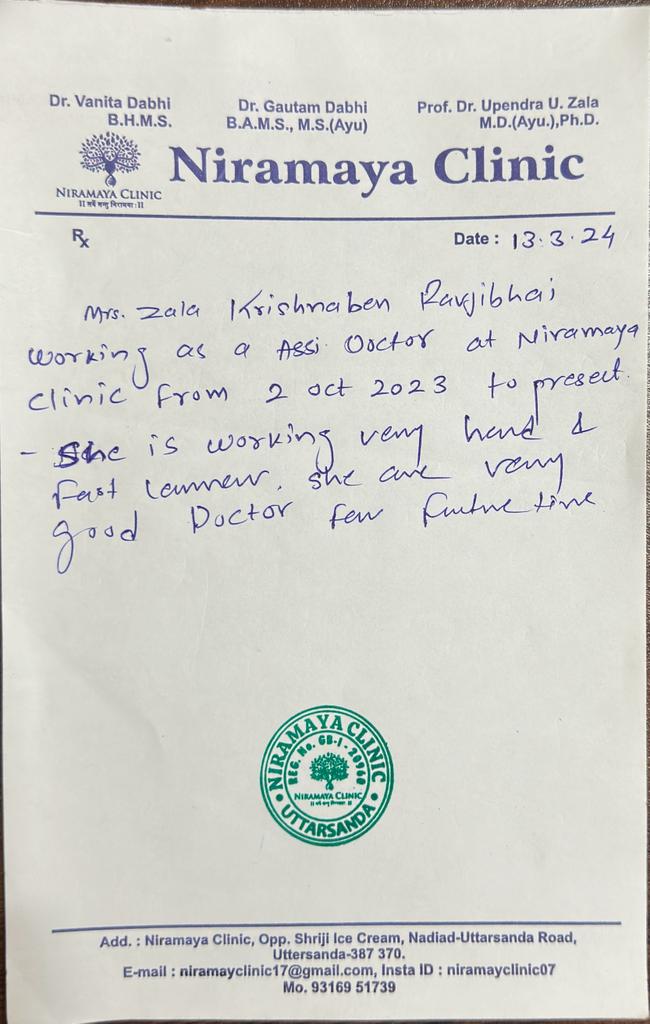 Dr. Vanita Dabhi
B.H.M.S.
Dr. Gautam Dabhi
B.A.M.S., M.S.(Ayu)
Prof. Dr. Upendra U. Zala
M.D.(Ayu.),Ph.D.
Niramaya Clinic
NIRAMAYA CLINIC
II सर्वे सन्तु निरामया: II
Rx
Date : 13.3.24
Mrs. Zala Krishnaben Ravjibhai
working as a Assi Doctor at Niramaya
clinic from 2 oct 2023 to present.
- She is working very hard &
Fast learner. she are very
good Doctor for Future time
NIRAMAYA CLINIC
REG. No. GB-I - 20960
NIRAMAYA CLINIC
UTTARSANDA
Add. : Niramaya Clinic, Opp. Shriji Ice Cream, Nadiad-Uttarsanda Road,
Uttersanda-387 370.
E-mail : niramayclinic17@gmail.com, Insta ID : niramayclinic07
Mo. 93169 51739